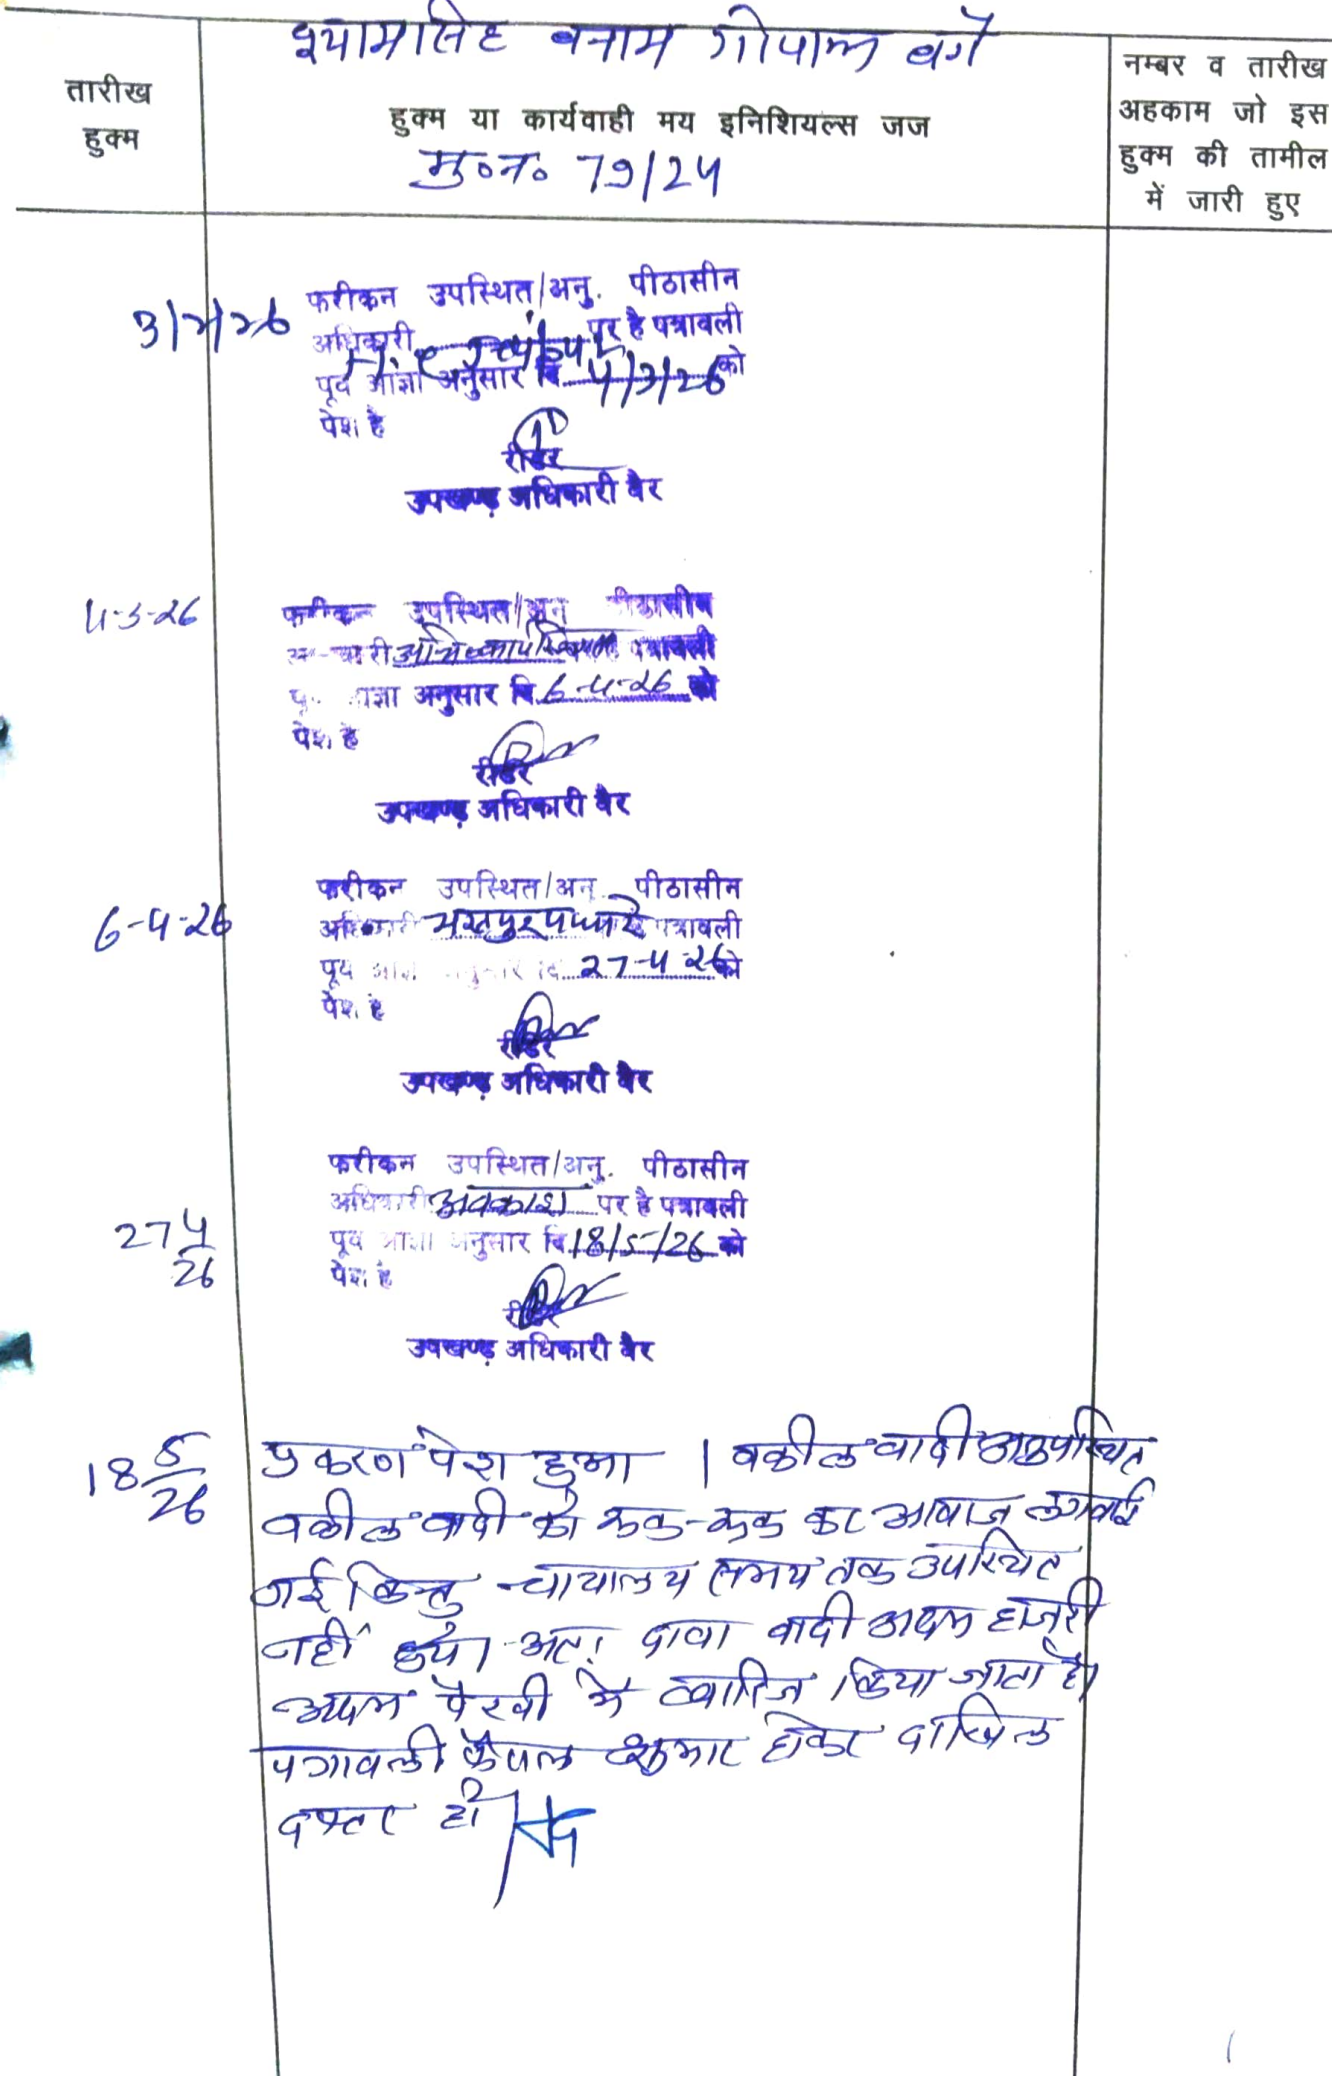 श्यामसिंह बनाम गोपाल वगै
तारीख
हुक्म
हुक्म या कार्यवाही मय इनिशियल्स जज
मु०न० 79/24
नम्बर व तारीख
अहकाम जो इस
हुक्म की तामील
में जारी हुए
फरीकन उपस्थित/अनु. पीठासीन
अधिकारी पर है पत्रावली
पूर्व आज्ञा अनुसार दि. को
पेश है
रीडर
उपखण्ड अधिकारी वैर
4-3-26
फरीकन उपस्थित/अनु पीठासीन
पत्रावली
आज्ञा अनुसार दि 6-4-26 को
पेश है
रीडर
उपखण्ड अधिकारी वैर
6-4-26
फरीकन उपस्थित/अनु. पीठासीन
अधिकारी भरतपुर पधारे पत्रावली
पूर्व आज्ञा अनुसार दि 27-4-26 को
पेश है
रीडर
उपखण्ड अधिकारी वैर
27 4/26
फरीकन उपस्थित/अनु. पीठासीन
अधिकारी अवकाश पर है पत्रावली
पूर्व आज्ञा अनुसार दि 18/5/26 को
पेश है
रीडर
उपखण्ड अधिकारी वैर
18 5/26
प्रकरण पेश हुआ । वकील वादी अनुपस्थित
वकील वादी को रूक-रूक कर आवाज लगवाई
गई किन्तु न्यायालय समय तक उपस्थित
नहीं अतः दावा वादी अदम हाजरी
अदम पैरवी में खारिज किया जाता है।
पत्रावली फैसल शुमार होकर दाखिल
दफ्तर हो